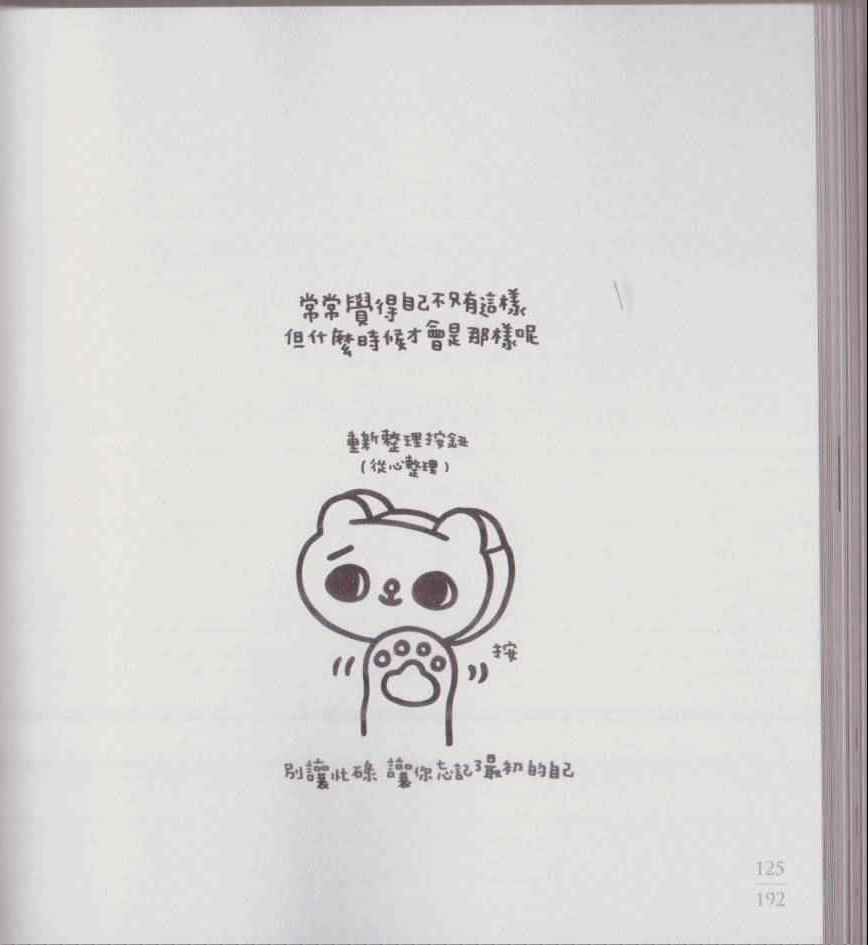 常常覺得自己不只有這樣
但什麼時候才會是那樣呢
重新整理按鈕
(從心整理)
按
別讓忙碌 讓你忘記了最初的自己
125
192